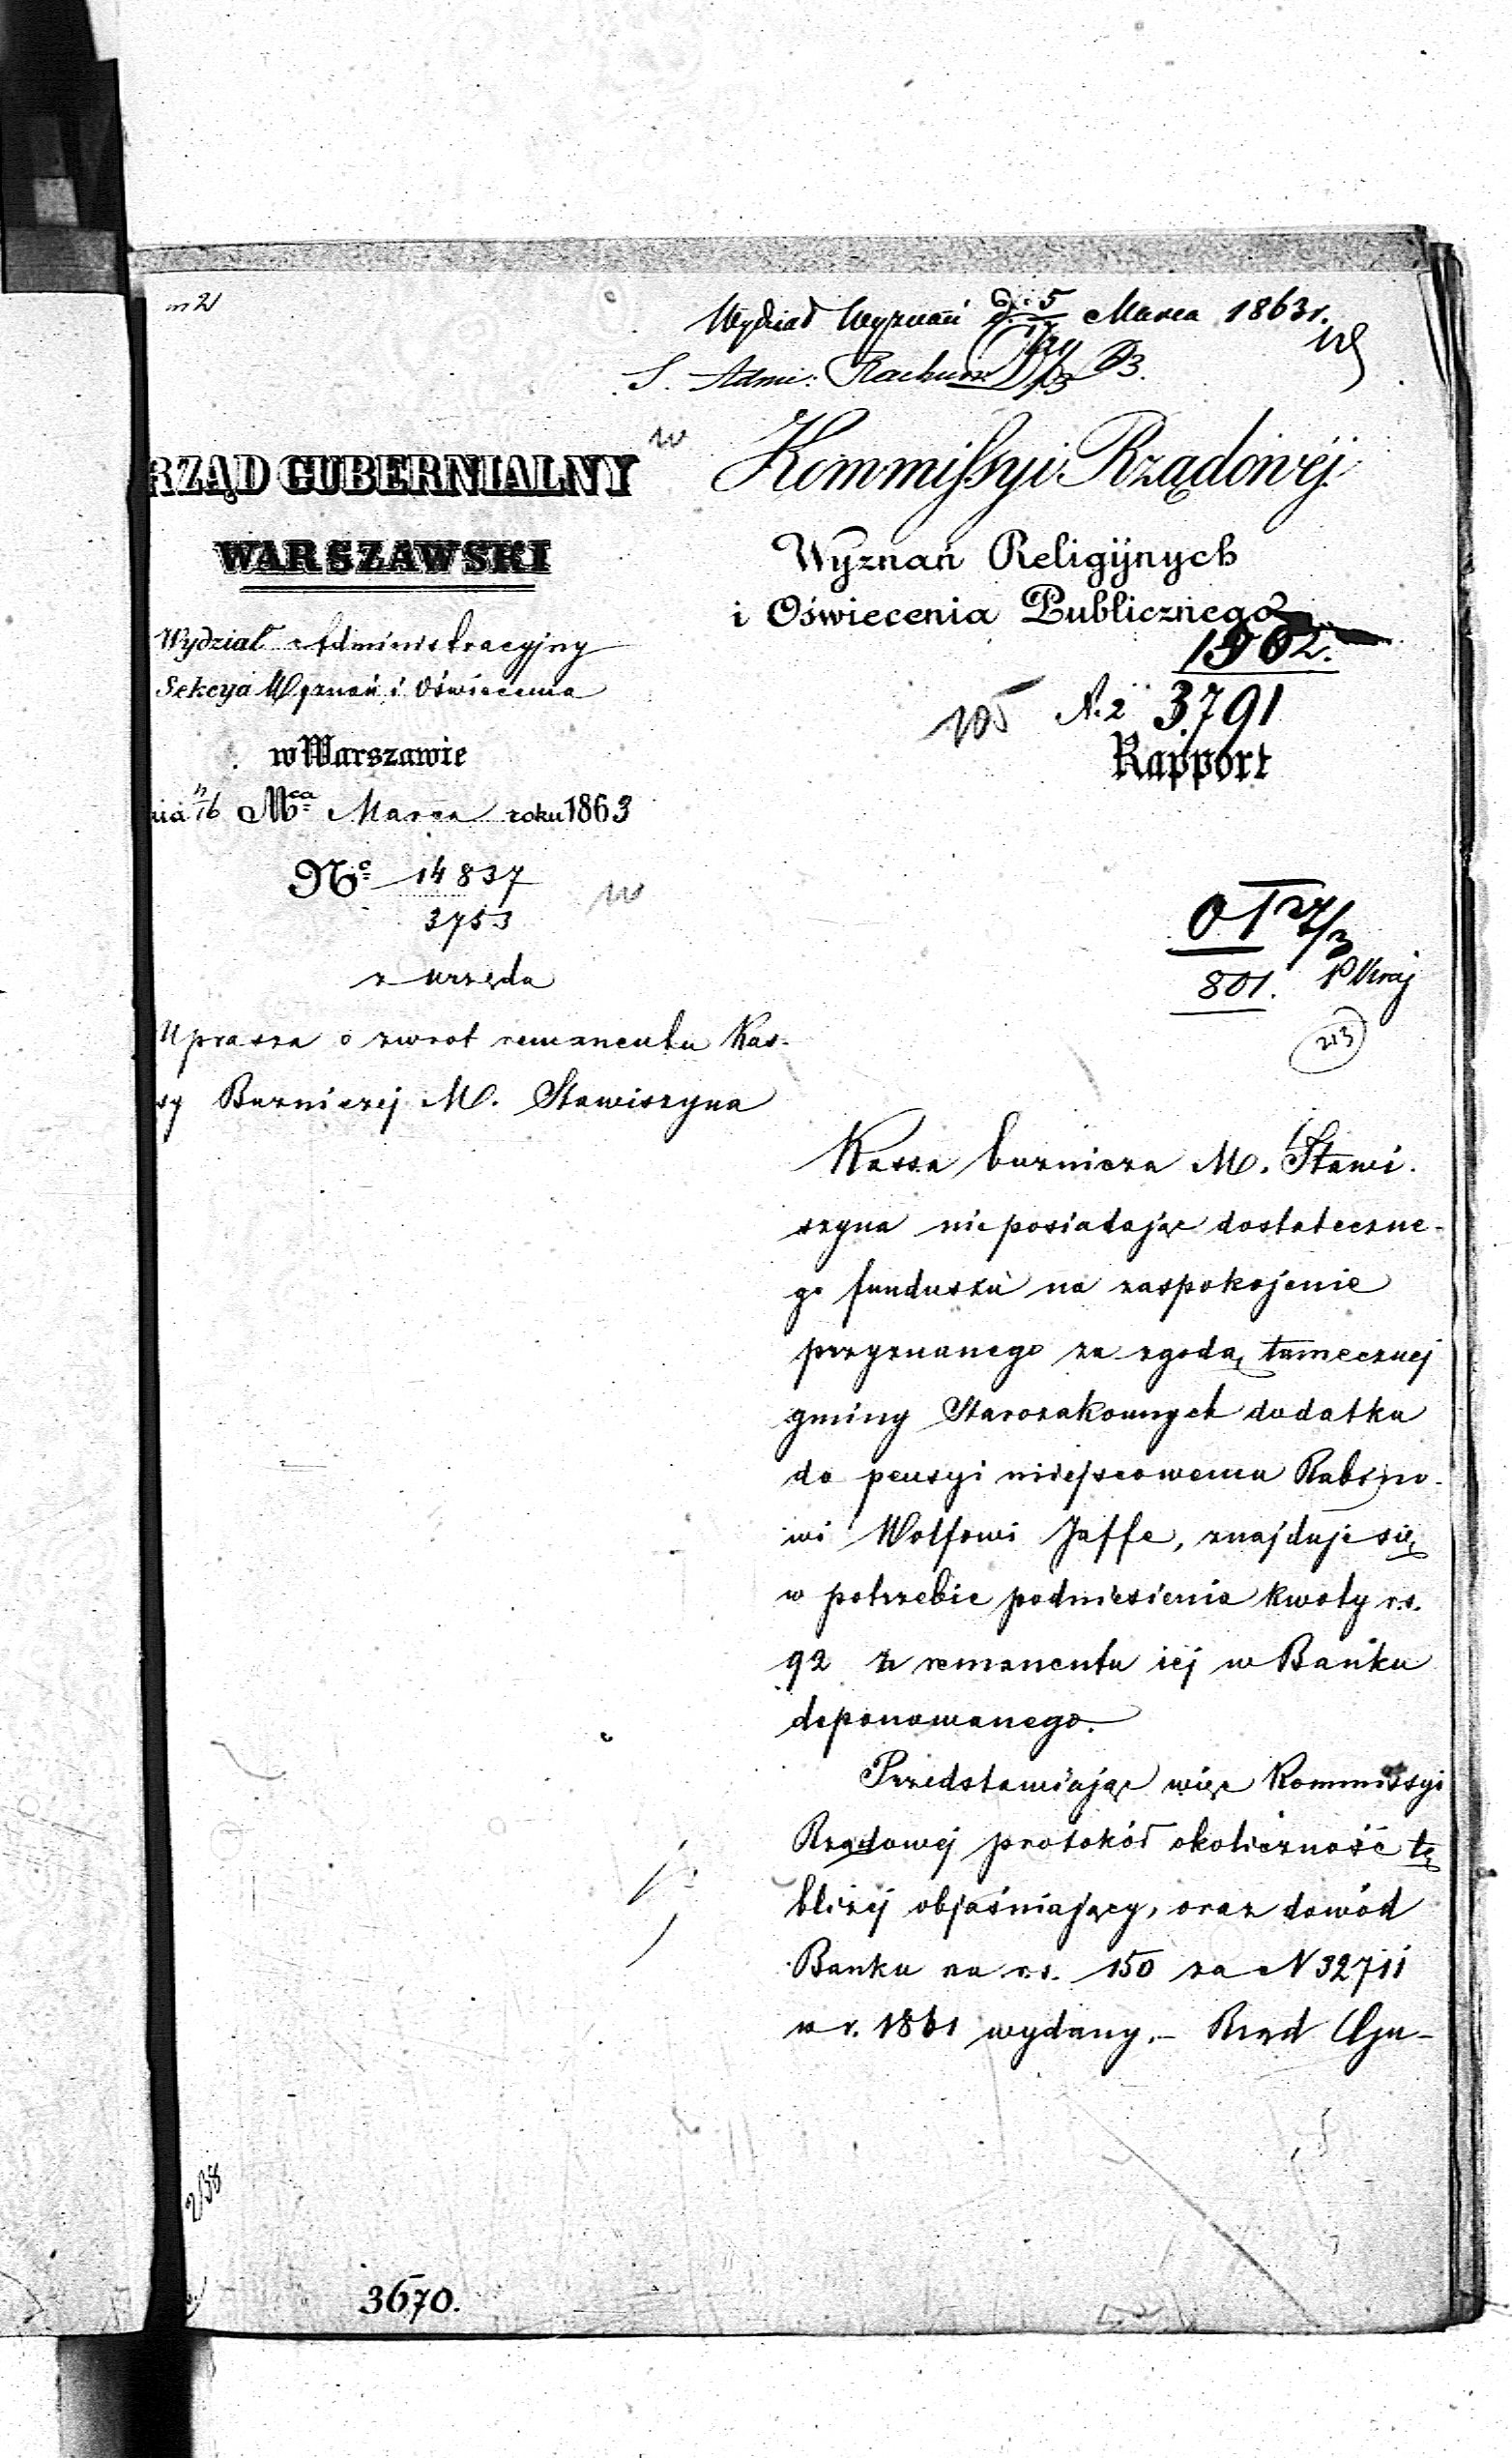 Wydział Wyznań d. 5/17 Marca 1863 r.
S. Admi: Rachun
RZĄD GUBERNIALNY
WARSZAWSKI
Wydział Administracyjny
Sekcya Wyznań i Oświecenia
w Warszawie
nia 4/16 Mca Marca roku 1863
No 14837
3753
z urzędu
Uprasza o zwrot remanentu Kas-
sy Bużniczej M. Stawiszyna
Kommissyi Rządowéj
Wyznań Religijnych
i Oświecenia Publicznego
1562.
105 N. 2 3791
Rapport
OT 27/3
801.
213
Kassa bużnicza M. Stawi-
szyna nieposiadając dostateczne-
go funduszu na zaspokojenie
przyznanego za zgodą tamecznej
gminy Starozakonnych dodatku
do pensyi miejscowemu Rabino-
wi Wolfowi Jaffe, znajduje się
w potrzebie podniesienia kwoty r.s.
92 z remanentu iej w Banku
deponowanego.
Przedstawiając więc Kommissyi
Rządowej protokół okoliczność tę
bliżej objaśniający, oraz dowód
Banku na r.s. 150 za N 32711
w r. 1861 wydany. – Rząd Gu-
2138
3670.